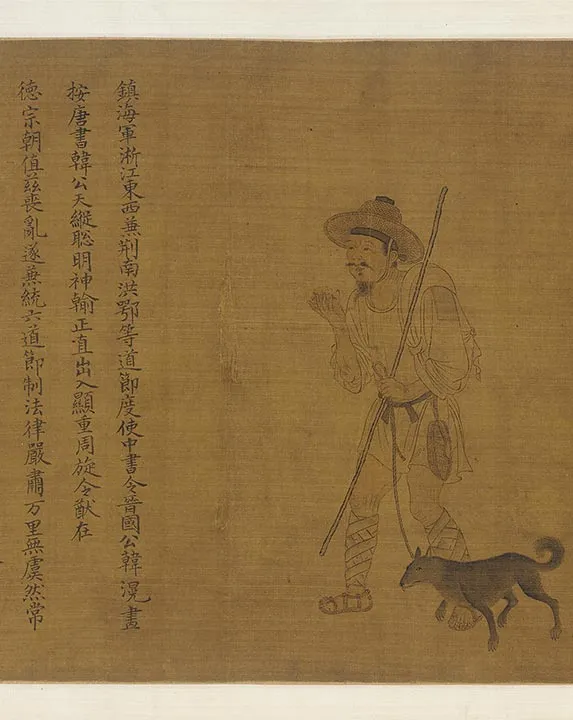 鎮海軍浙江東西兼荆南洪鄂等道節度使中書令晉國公韓滉畫
按唐書韓公天縱聰明神輸正直出入顯重周旋令猷在
德宗朝值兹喪亂遂兼統六道節制法律嚴肅万里無虞然常